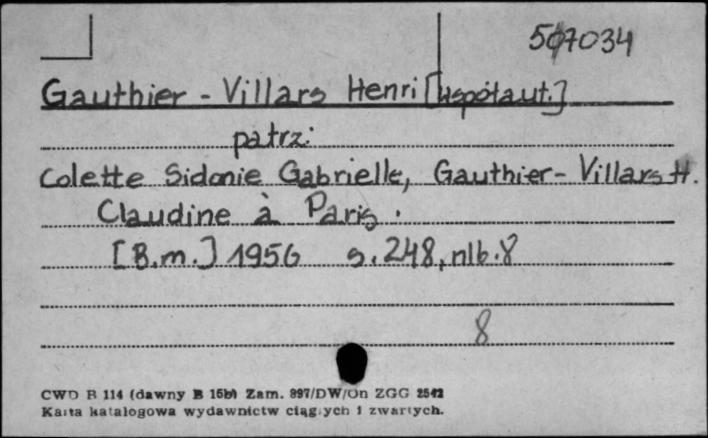 507034
Gauthier - Villars Henri [współaut.]
patrz:
Colette Sidonie Gabrielle, Gauthier - Villars H.
Claudine à Paris.
[B.m.] 1956 s. 248, nlb. 8
8
CWD B 114 (dawny B 15b) Zam. 997/DW/On ZGG 2542
Karta katalogowa wydawnictw ciągłych i zwartych.